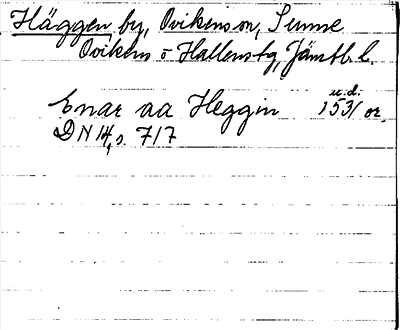 Häggen by, Ovikens sn, Sunne
Ovikens o Hallens tg, Jämtl. l.
u.d.
Enar aa Heggin 1531 or.
DN 14, s. 717